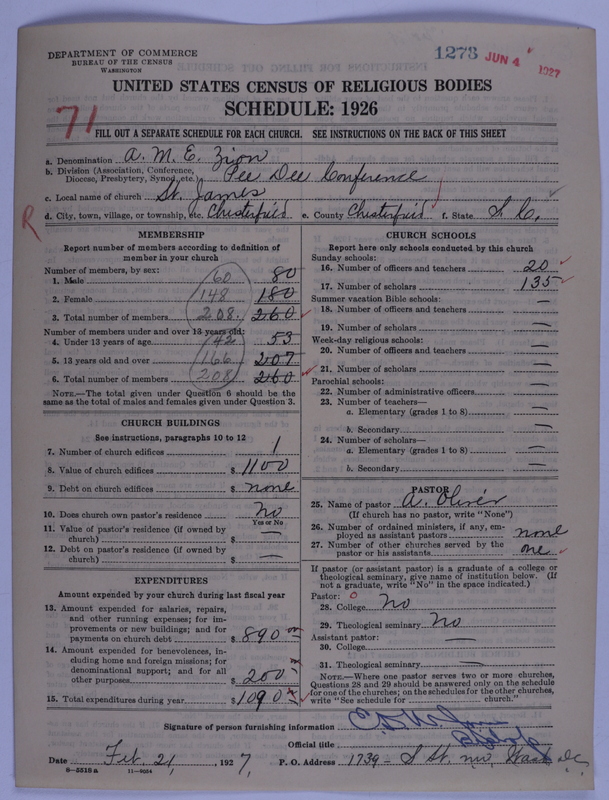 DEPARTMENT OF COMMERCE
BUREAU OF THE CENSUS
WASHINGTON
1273 JUN 4 1927
UNITED STATES CENSUS OF RELIGIOUS BODIES
SCHEDULE: 1926
71
FILL OUT A SEPARATE SCHEDULE FOR EACH CHURCH. SEE INSTRUCTIONS ON THE BACK OF THIS SHEET
a. Denomination A. M. E. Zion
b. Division (Association, Conference, Diocese, Presbytery, Synod, etc.) Pee Dee Conference
c. Local name of church St. James
R d. City, town, village, or township, etc. Chesterfield e. County Chesterfield f. State S. C.
MEMBERSHIP
Report number of members according to definition of
member in your church
Number of members, by sex:
1. Male 60 80
2. Female 148 180
3. Total number of members 208. 260
Number of members under and over 13 years old:
4. Under 13 years of age 42 53
5. 13 years old and over 166 207
6. Total number of members 208 260
NOTE.—The total given under Question 6 should be the
same as the total of males and females given under Question 3.
CHURCH BUILDINGS
See instructions, paragraphs 10 to 12
7. Number of church edifices 1
8. Value of church edifices $ 1100
9. Debt on church edifices $ none
10. Does church own pastor's residence No
Yes or No
11. Value of pastor's residence (if owned by
church) $ —
12. Debt on pastor's residence (if owned by
church) $ —
EXPENDITURES
Amount expended by your church during last fiscal year
13. Amount expended for salaries, repairs,
and other running expenses; for im-
provements or new buildings; and for
payments on church debt $ 890
14. Amount expended for benevolences, in-
cluding home and foreign missions; for
denominational support; and for all
other purposes $ 200
15. Total expenditures during year $ 1090
CHURCH SCHOOLS
Report here only schools conducted by this church
Sunday schools:
16. Number of officers and teachers 20
17. Number of scholars 135
Summer vacation Bible schools:
18. Number of officers and teachers —
19. Number of scholars —
Week-day religious schools:
20. Number of officers and teachers —
21. Number of scholars —
Parochial schools:
22. Number of administrative officers —
23. Number of teachers—
a. Elementary (grades 1 to 8) —
b. Secondary —
24. Number of scholars—
a. Elementary (grades 1 to 8) —
b. Secondary —
PASTOR
25. Name of pastor A. Oliver
(If church has no pastor, write "None")
26. Number of ordained ministers, if any, em-
ployed as assistant pastors none
27. Number of other churches served by the
pastor or his assistants one
If pastor (or assistant pastor) is a graduate of a college or
theological seminary, give name of institution below. (If
not a graduate, write "No" in the space indicated.)
Pastor: 0
28. College No
29. Theological seminary No
Assistant pastor:
30. College —
31. Theological seminary —
NOTE.—Where one pastor serves two or more churches,
Questions 28 and 29 should be answered only on the schedule
for one of the churches; on the schedules for the other churches,
write "See schedule for church."
Signature of person furnishing information
Official title Bishop
Date Feb. 21, 1927, P. O. Address 1739 - S St. nw, Wash DC.
8—5518a 11—9054